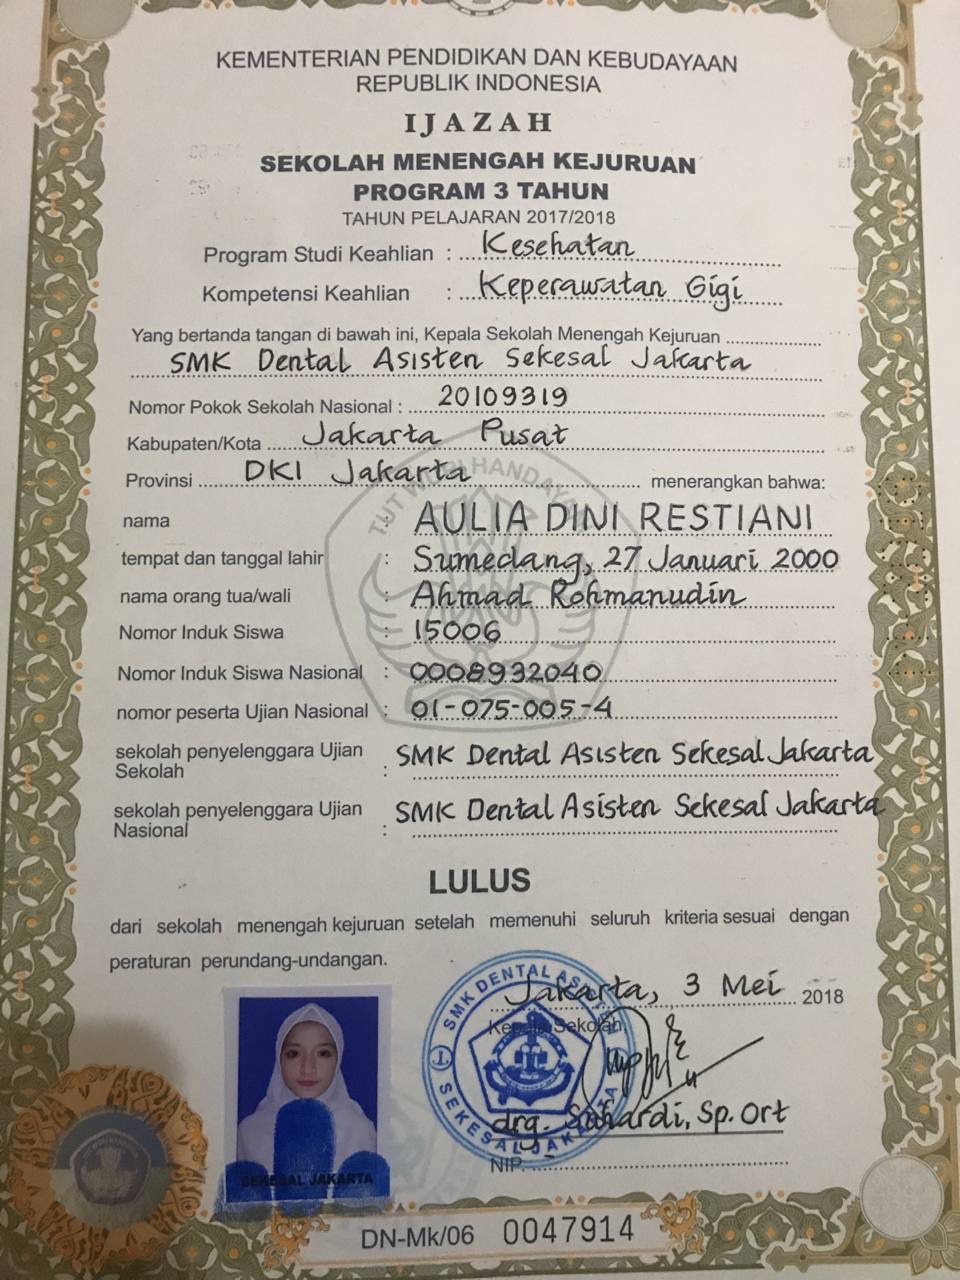 KEMENTERIAN PENDIDIKAN DAN KEBUDAYAAN
REPUBLIK INDONESIA
IJAZAH
SEKOLAH MENENGAH KEJURUAN
PROGRAM 3 TAHUN
TAHUN PELAJARAN 2017/2018
Program Studi Keahlian : Kesehatan
Kompetensi Keahlian : Keperawatan Gigi
Yang bertanda tangan di bawah ini, Kepala Sekolah Menengah Kejuruan
SMK Dental Asisten Sekesal Jakarta
Nomor Pokok Sekolah Nasional : 20109319
Kabupaten/Kota Jakarta Pusat
Provinsi DKI Jakarta menerangkan bahwa:
TUT WURI HANDAYANI
nama : AULIA DINI RESTIANI
tempat dan tanggal lahir : Sumedang, 27 Januari 2000
nama orang tua/wali : Ahmad Rohmanudin
Nomor Induk Siswa : 15006
Nomor Induk Siswa Nasional : 0008932040
nomor peserta Ujian Nasional : 01-075-005-4
sekolah penyelenggara Ujian
Sekolah : SMK Dental Asisten Sekesal Jakarta
sekolah penyelenggara Ujian
Nasional : SMK Dental Asisten Sekesal Jakarta
LULUS
dari sekolah menengah kejuruan setelah memenuhi seluruh kriteria sesuai dengan
peraturan perundang-undangan.
Jakarta, 3 Mei 2018
Kepala Sekolah,
SMK DENTAL ASIS
SEKESAL JAKARTA
drg. Suhardi, Sp. Ort
NIP.
SEKESAL JAKARTA
DN-Mk/06 0047914